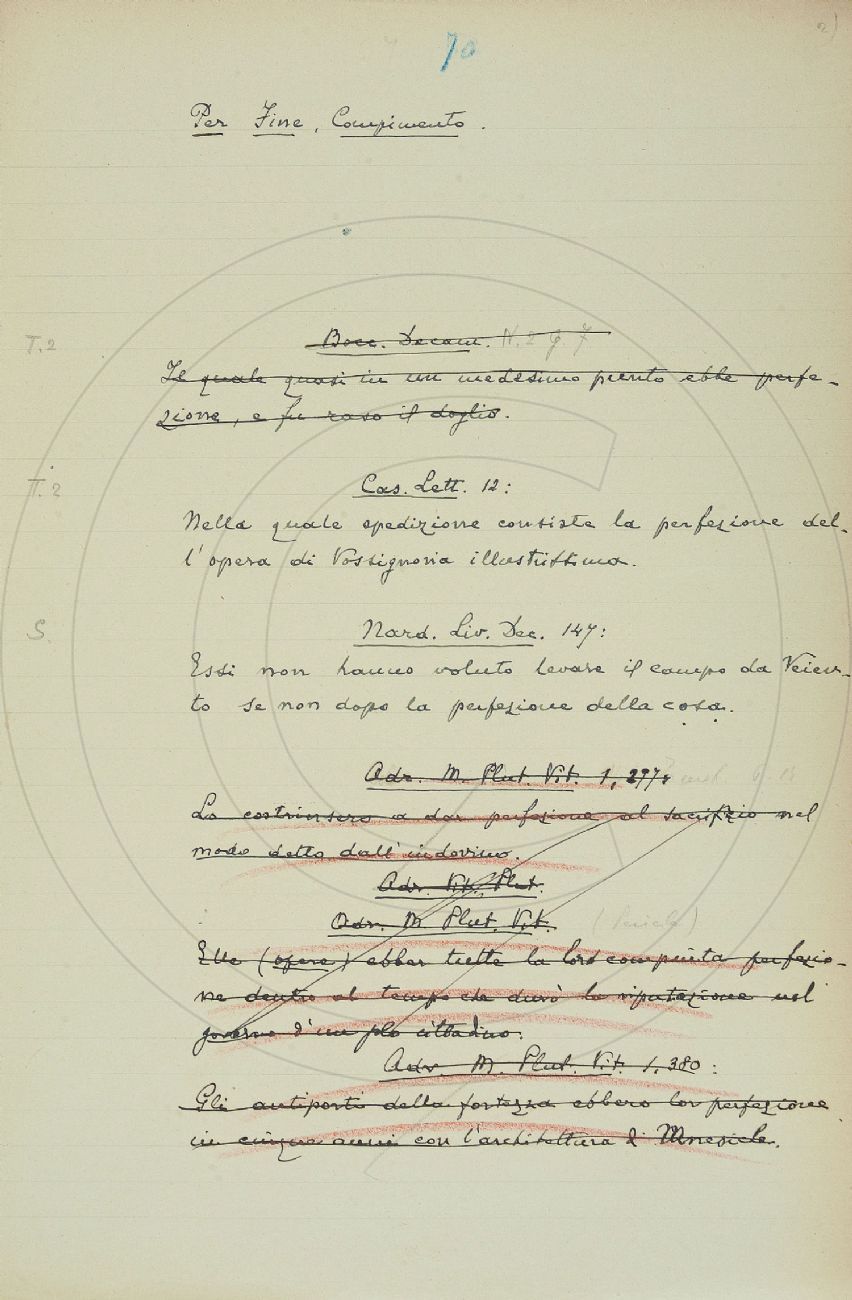 70
2)
Per Fine, Compimento.
T. 2
Bocc. Decam. N. 2 g. 7
Il quale quasi in un medesimo punto ebbe perfe-
zione, e fu raso il doglio.
T. 2
Cas. Lett. 12:
Nella quale spedizione consiste la perfezione del-
l'opera di Vossignoria illustrissima.
S.
Nard. Liv. Dec. 147:
Essi non hanno voluto levare il campo da Veien-
to se non dopo la perfezione della cosa.
Adr. M. Plut. Vit. 1, 297:
Lo costrinsero a dar perfezione al sacrifizio nel
modo detto dall'indovino.
Adr. Vit. Plut.
Adr. M Plut. Vit.
Elle (opere) ebber tutte la loro compiuta perfezio-
ne dentro al tempo che durò la riputazione nel
governo d'un plo cittadino.
Adr. M. Plut. Vit. 1, 380:
Gli antiporti della fortezza ebbero lor perfezione
in cinque anni con l'architettura di Mnesicle.